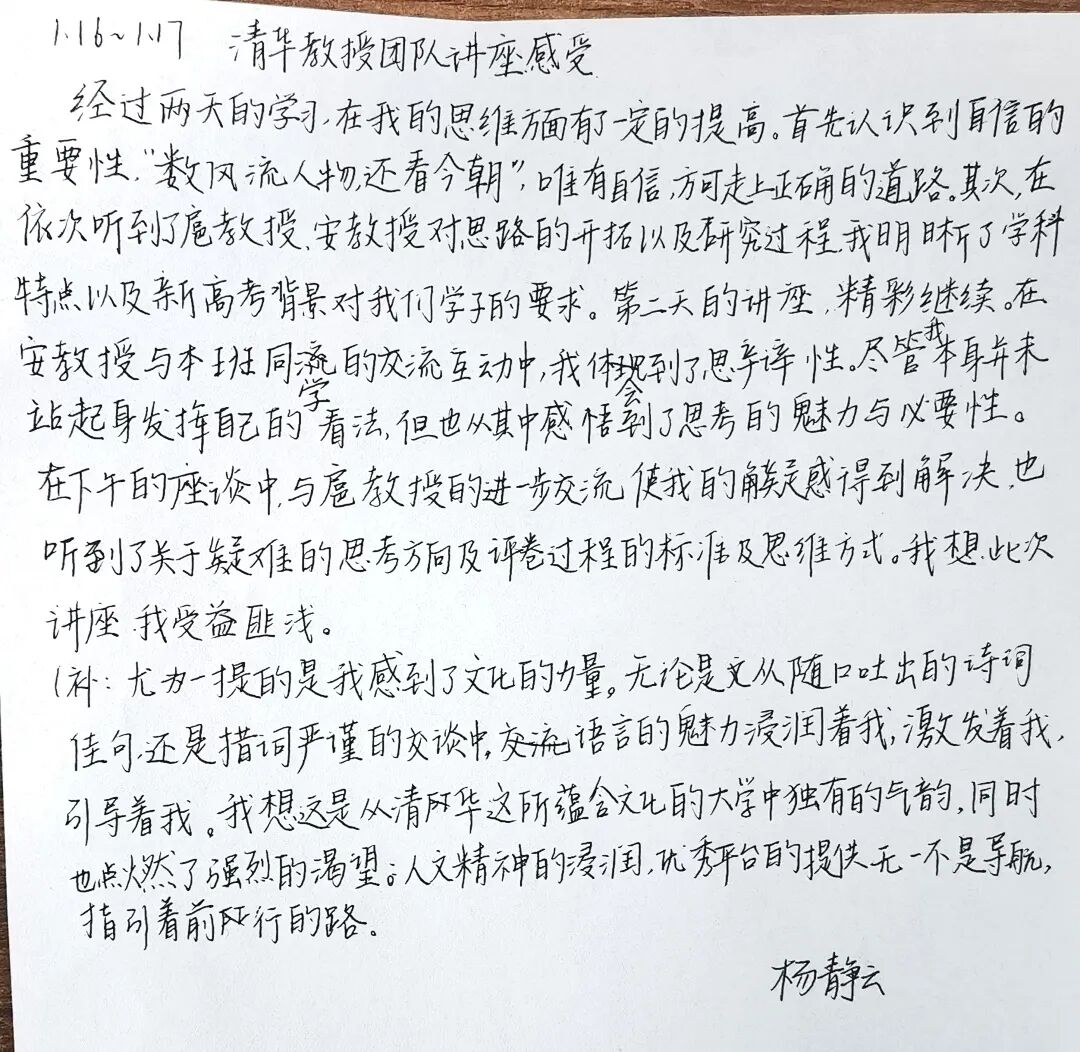 1.16~1.17 清华教授团队讲座感受
经过两天的学习,在我的思维方面有了一定的提高。首先认识到自信的
重要性,“数风流人物,还看今朝”,唯有自信,方可走上正确的道路。其次,在
依次听到了扈教授、安教授对思路的开拓以及研究过程,我明晰了学科
特点以及新高考背景对我们学子的要求。第二天的讲座,精彩继续。在
安教授与本班同学的交流互动中,我体会到了思辨性。尽管我本身并未
站起身发挥自己的看法,但也从其中感悟到了思考的魅力与必要性。
在下午的座谈中,与扈教授的进一步交流,使我的疑惑得到解决,也
听到了关于疑难的思考方向及评卷过程的标准及思维方式。我想,此次
讲座,我受益匪浅。
(补:尤为一提的是我感到了文化的力量。无论是文从随口吐出的诗词
佳句,还是措词严谨的交谈中,语言的魅力浸润着我,激发着我,
引导着我。我想这是从清华这所蕴含文化的大学中独有的气韵,同时
也点燃了强烈的渴望;人文精神的浸润,优秀平台的提供,无一不是导航,
指引着前行的路。
杨静云